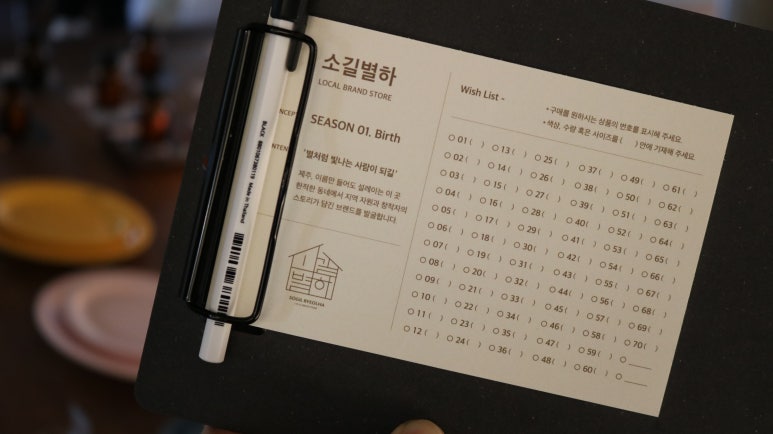 소길별하
LOCAL BRAND STORE
SEASON 01. Birth
'별처럼 빛나는 사람이 되길'
제주, 이름만 들어도 설레이는 이 곳
한적한 동네에서 지역 자원과 창작자의
스토리가 담긴 브랜드를 발굴합니다.
SOGIL BYEOLHA
BLACK
Made in Thailand
Wish List -
*구매를 원하시는 상품의 번호를 표시해 주세요.
*색상, 수량 혹은 사이즈를 ( ) 안에 기재해 주세요.
01 ( ) 13 ( ) 25 ( ) 37 ( ) 49 ( ) 61 ( )
02 ( ) 14 ( ) 26 ( ) 38 ( ) 50 ( ) 62 ( )
03 ( ) 15 ( ) 27 ( ) 39 ( ) 51 ( ) 63 ( )
04 ( ) 16 ( ) 28 ( ) 40 ( ) 52 ( ) 64 ( )
05 ( ) 17 ( ) 29 ( ) 41 ( ) 53 ( ) 65 ( )
06 ( ) 18 ( ) 30 ( ) 42 ( ) 54 ( ) 66 ( )
07 ( ) 19 ( ) 31 ( ) 43 ( ) 55 ( ) 67 ( )
08 ( ) 20 ( ) 32 ( ) 44 ( ) 56 ( ) 68 ( )
09 ( ) 21 ( ) 33 ( ) 45 ( ) 57 ( ) 69 ( )
10 ( ) 22 ( ) 34 ( ) 46 ( ) 58 ( ) 70 ( )
11 ( ) 23 ( ) 35 ( ) 47 ( ) 59 ( )
12 ( ) 24 ( ) 36 ( ) 48 ( ) 60 ( )